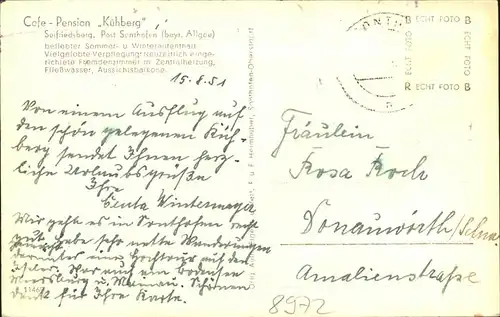 Cafe - Pension „Kühberg"
Seifriedsberg, Post Sonthofen (bayr. Allgäu)
beliebter Sommer- u Winteraufenthalt
Vielgelobte Verpflegung, neuzeitlich einge-
richtete Fremdenzimmer m Zentralheizung,
Fließwasser, Aussichtsbalkone.
15.8.51
Von einem Ausflug auf
den schön gelegenen Küh-
berg sendet Ihnen herz-
liche Urlaubsgrüße
Ihre
Centa Wintermayr
Mir geht es in Sonthofen recht
gut, habe sehr nette Wanderungen
gemacht
darunter eine Hochtour auf den
War auch am Bodensee
Meersburg u. Mainau. Schönen
Dank für Ihre Karte.
R ECHT FOTO B
ECHT FOTO
R ECHT FOTO B
Fräulein
Rosa Koch
Donauwörth/Schwa.
Amalienstraße
8972